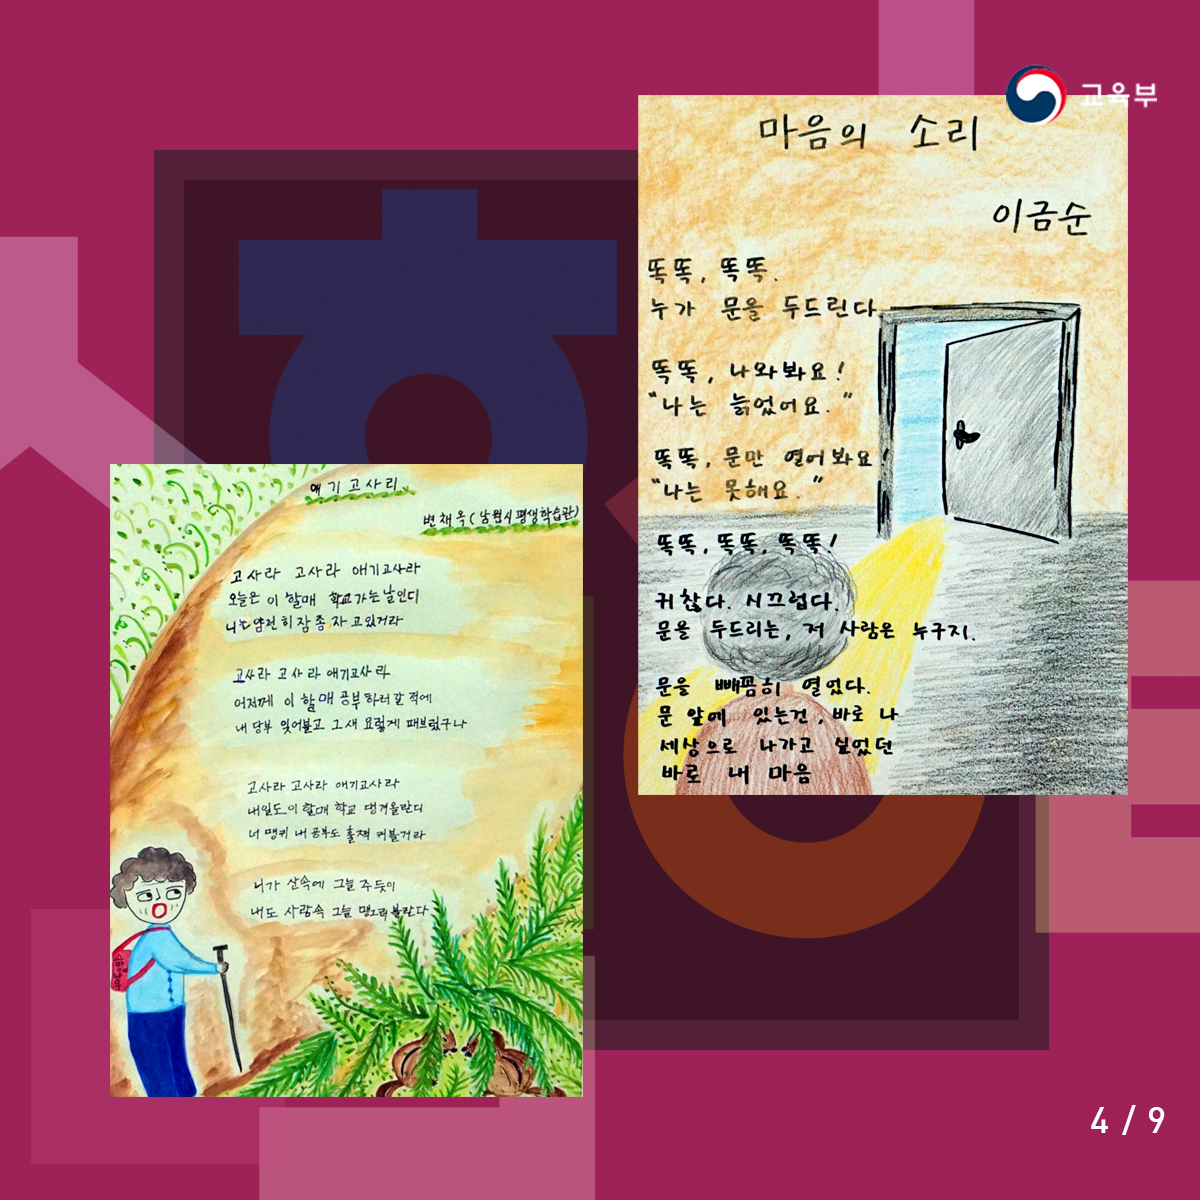 교육부
마음의 소리
이금순
똑똑, 똑똑.
누가 문을 두드린다.
똑똑, 나와봐요!
"나는 늙었어요."
똑똑, 문만 열어봐요!
"나는 못해요."
똑똑, 똑똑, 똑똑!
귀찮다. 시끄럽다.
문을 두드리는, 저 사람은 누구지.
문을 빼꼼히 열었다.
문 앞에 있는건, 바로 나
세상으로 나가고 싶었던
바로 내 마음
애기고사리
변채옥(남원시평생학습관)
고사라 고사라 애기고사라
오늘은 이 할매 학교가는날인디
니는 얌전히 잠 좀 자고있거라
고사라 고사라 애기고사라
어저께 이 할매 공부하러 갈 적에
내 당부 잊어불고 그새 요렇게 패브렀구나
고사라 고사라 애기고사라
내일도 이 할매 학교 댕겨올란디
너 땡키 내 공부도 훌쩍 커블거라
니가 산속에 그늘 주듯이
내도 사람속 그늘 맹그러볼란다
4 / 9